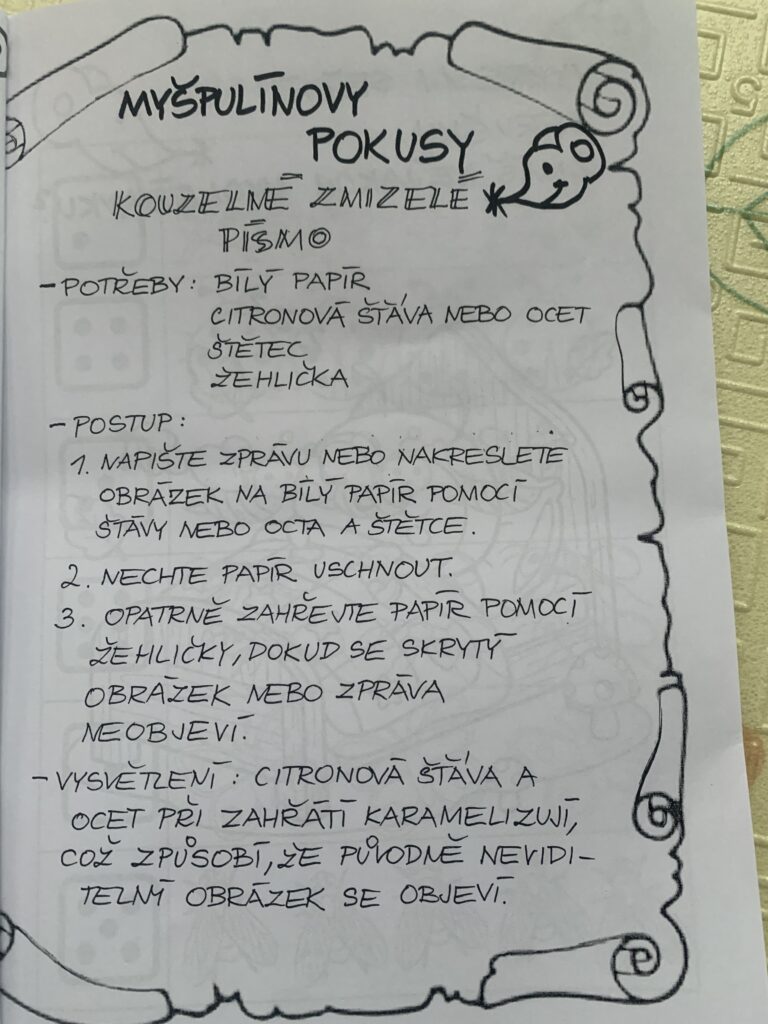 MYŠPULÍNOVY
POKUSY
KOUZELNÉ ZMIZELÉ
PÍSMO
- POTŘEBY: BÍLÝ PAPÍR
CITRONOVÁ ŠŤÁVA NEBO OCET
ŠTĚTEC
ŽEHLIČKA
- POSTUP:
1. NAPIŠTE ZPRÁVU NEBO NAKRESLETE
OBRÁZEK NA BÍLÝ PAPÍR POMOCÍ
ŠTÁVY NEBO OCTA A ŠTĚTCE.
2. NECHTE PAPÍR USCHNOUT.
3. OPATRNĚ ZAHŘEJTE PAPÍR POMOCÍ
ŽEHLIČKY, DOKUD SE SKRYTÝ
OBRÁZEK NEBO ZPRÁVA
NEOBJEVÍ.
- VYSVĚTLENÍ: CITRONOVÁ ŠŤÁVA A
OCET PŘI ZAHŘÁTÍ KARAMELIZUJÍ,
COŽ ZPŮSOBÍ, ŽE PŮVODNĚ NEVIDI-
TELNÝ OBRÁZEK SE OBJEVÍ.